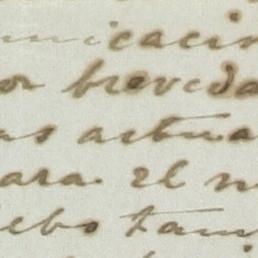 nicacio
or breveda
as actua
ara. el n
ebo tam